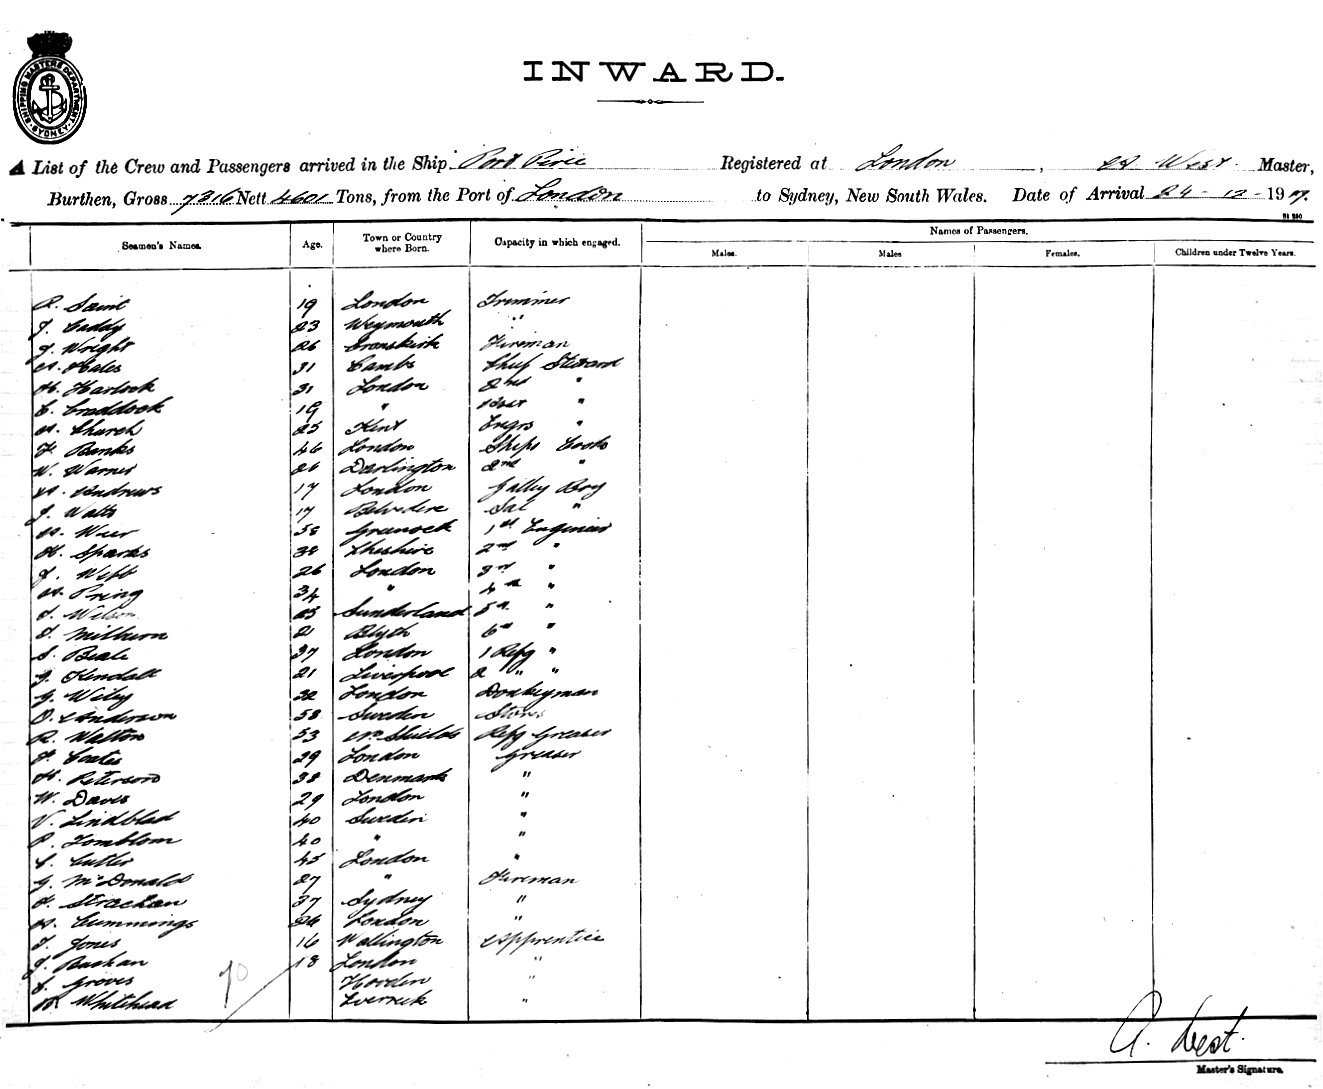 SHIPPING MASTERS DEPARTMENT SYDNEY
INWARD.
A List of the Crew and Passengers arrived in the Ship Port Pirie Registered at London, A West Master,
Burthen, Gross 7316 Nett 4601 Tons, from the Port of London to Sydney, New South Wales. Date of Arrival 24-12-19
Seamen's Names. Age. Town or Country where Born. Capacity in which engaged. Names of Passengers.
Males. Males Females. Children under Twelve Years.
R. Saint 19 London Trimmer
J. Caddy 23 Weymouth "
J. Wright 26 Ormskirk Fireman
A. Hales 31 Cambs Chief Steward
H. Harlock 31 London 2nd "
C. Craddock 19 " "
A. Church 25 Kent Engrs "
F. Banks 46 London Ships Cook
W. Warner 26 Darlington 2nd "
A. Andrews 17 London Galley Boy
J. Watts 17 Belvedere "
A. Weir 58 Greenock 1st Engineer
H. Sparks 38 Cheshire 2nd "
J. Webb 26 London 3rd "
A. Pring 34 " 4th "
T. Wilson 25 Sunderland 5th "
T. Milburn 21 Blyth 6th "
S. Beale 37 London 1 Refg "
G. Kendall 21 Liverpool 2 " "
G. Wiley 32 London Donkeyman
O. Anderson 58 Sweden Stores
R. Walton 53 Nth Shields Refg Greaser
F. Coates 29 London Greaser
H. Peterson 38 Denmark "
W. Davis 29 London "
V. Lindblad 40 Sweden "
P. Tomblom 40 " "
C. Cutler 45 London "
G. McDonald 27 " Fireman
F. Strachan 37 Sydney "
A. Cummings 26 London "
T. Jones 16 Wallington Apprentice
J. Bashan 18 London "
C. Groves Horden "
Whitehead "
70
A. West.
Master's Signature.